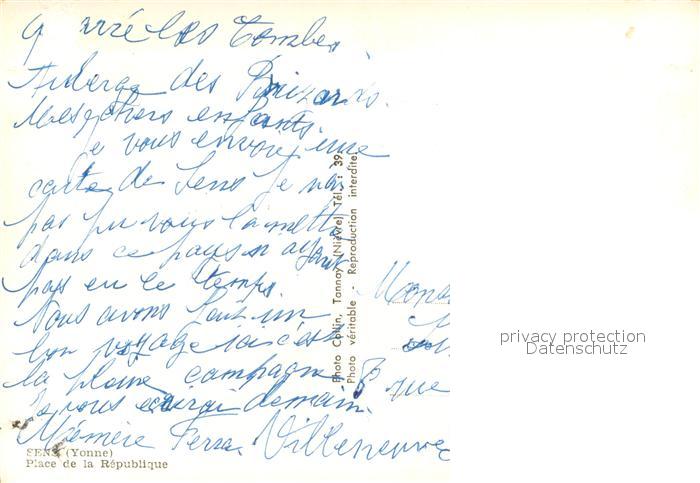 Quarré les Tombes
Auberge des Brizards
Mes chers enfants.
Je vous envoie une
carte de Sens je n'ai
pas pu vous la mettre
dans ce pays n'ayant
pas eu le temps.
Nous avons fait un
bon voyage ici c'est
la pleine campagne
Je vous écrirai demain.
Mémère
Villeneuve
rue
SENS (Yonne)
Place de la République
Photo Collin, Tannay (Nièvre) Tél. : 39
Photo véritable - Reproduction interdite
privacy protection
Datenschutz